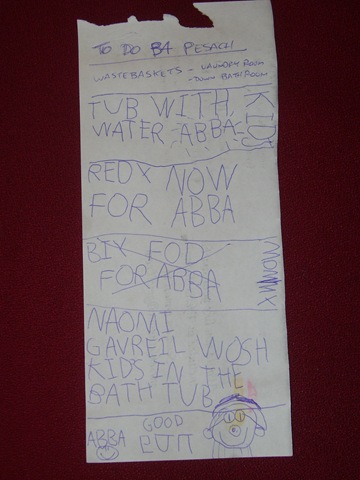 TO DO B4 PESACH
WASTEBASKETS - LAUNDRY ROOM
- DOWN BATHROOM
TUB WITH
WATER ABBA
KIDS
REDY NOW
FOR ABBA
BIY FOD
FOR ABBA
MOMMY
NAOMI
GAVREIL WOSH
KIDS IN THE
BATH TUB
ABBA GOOD